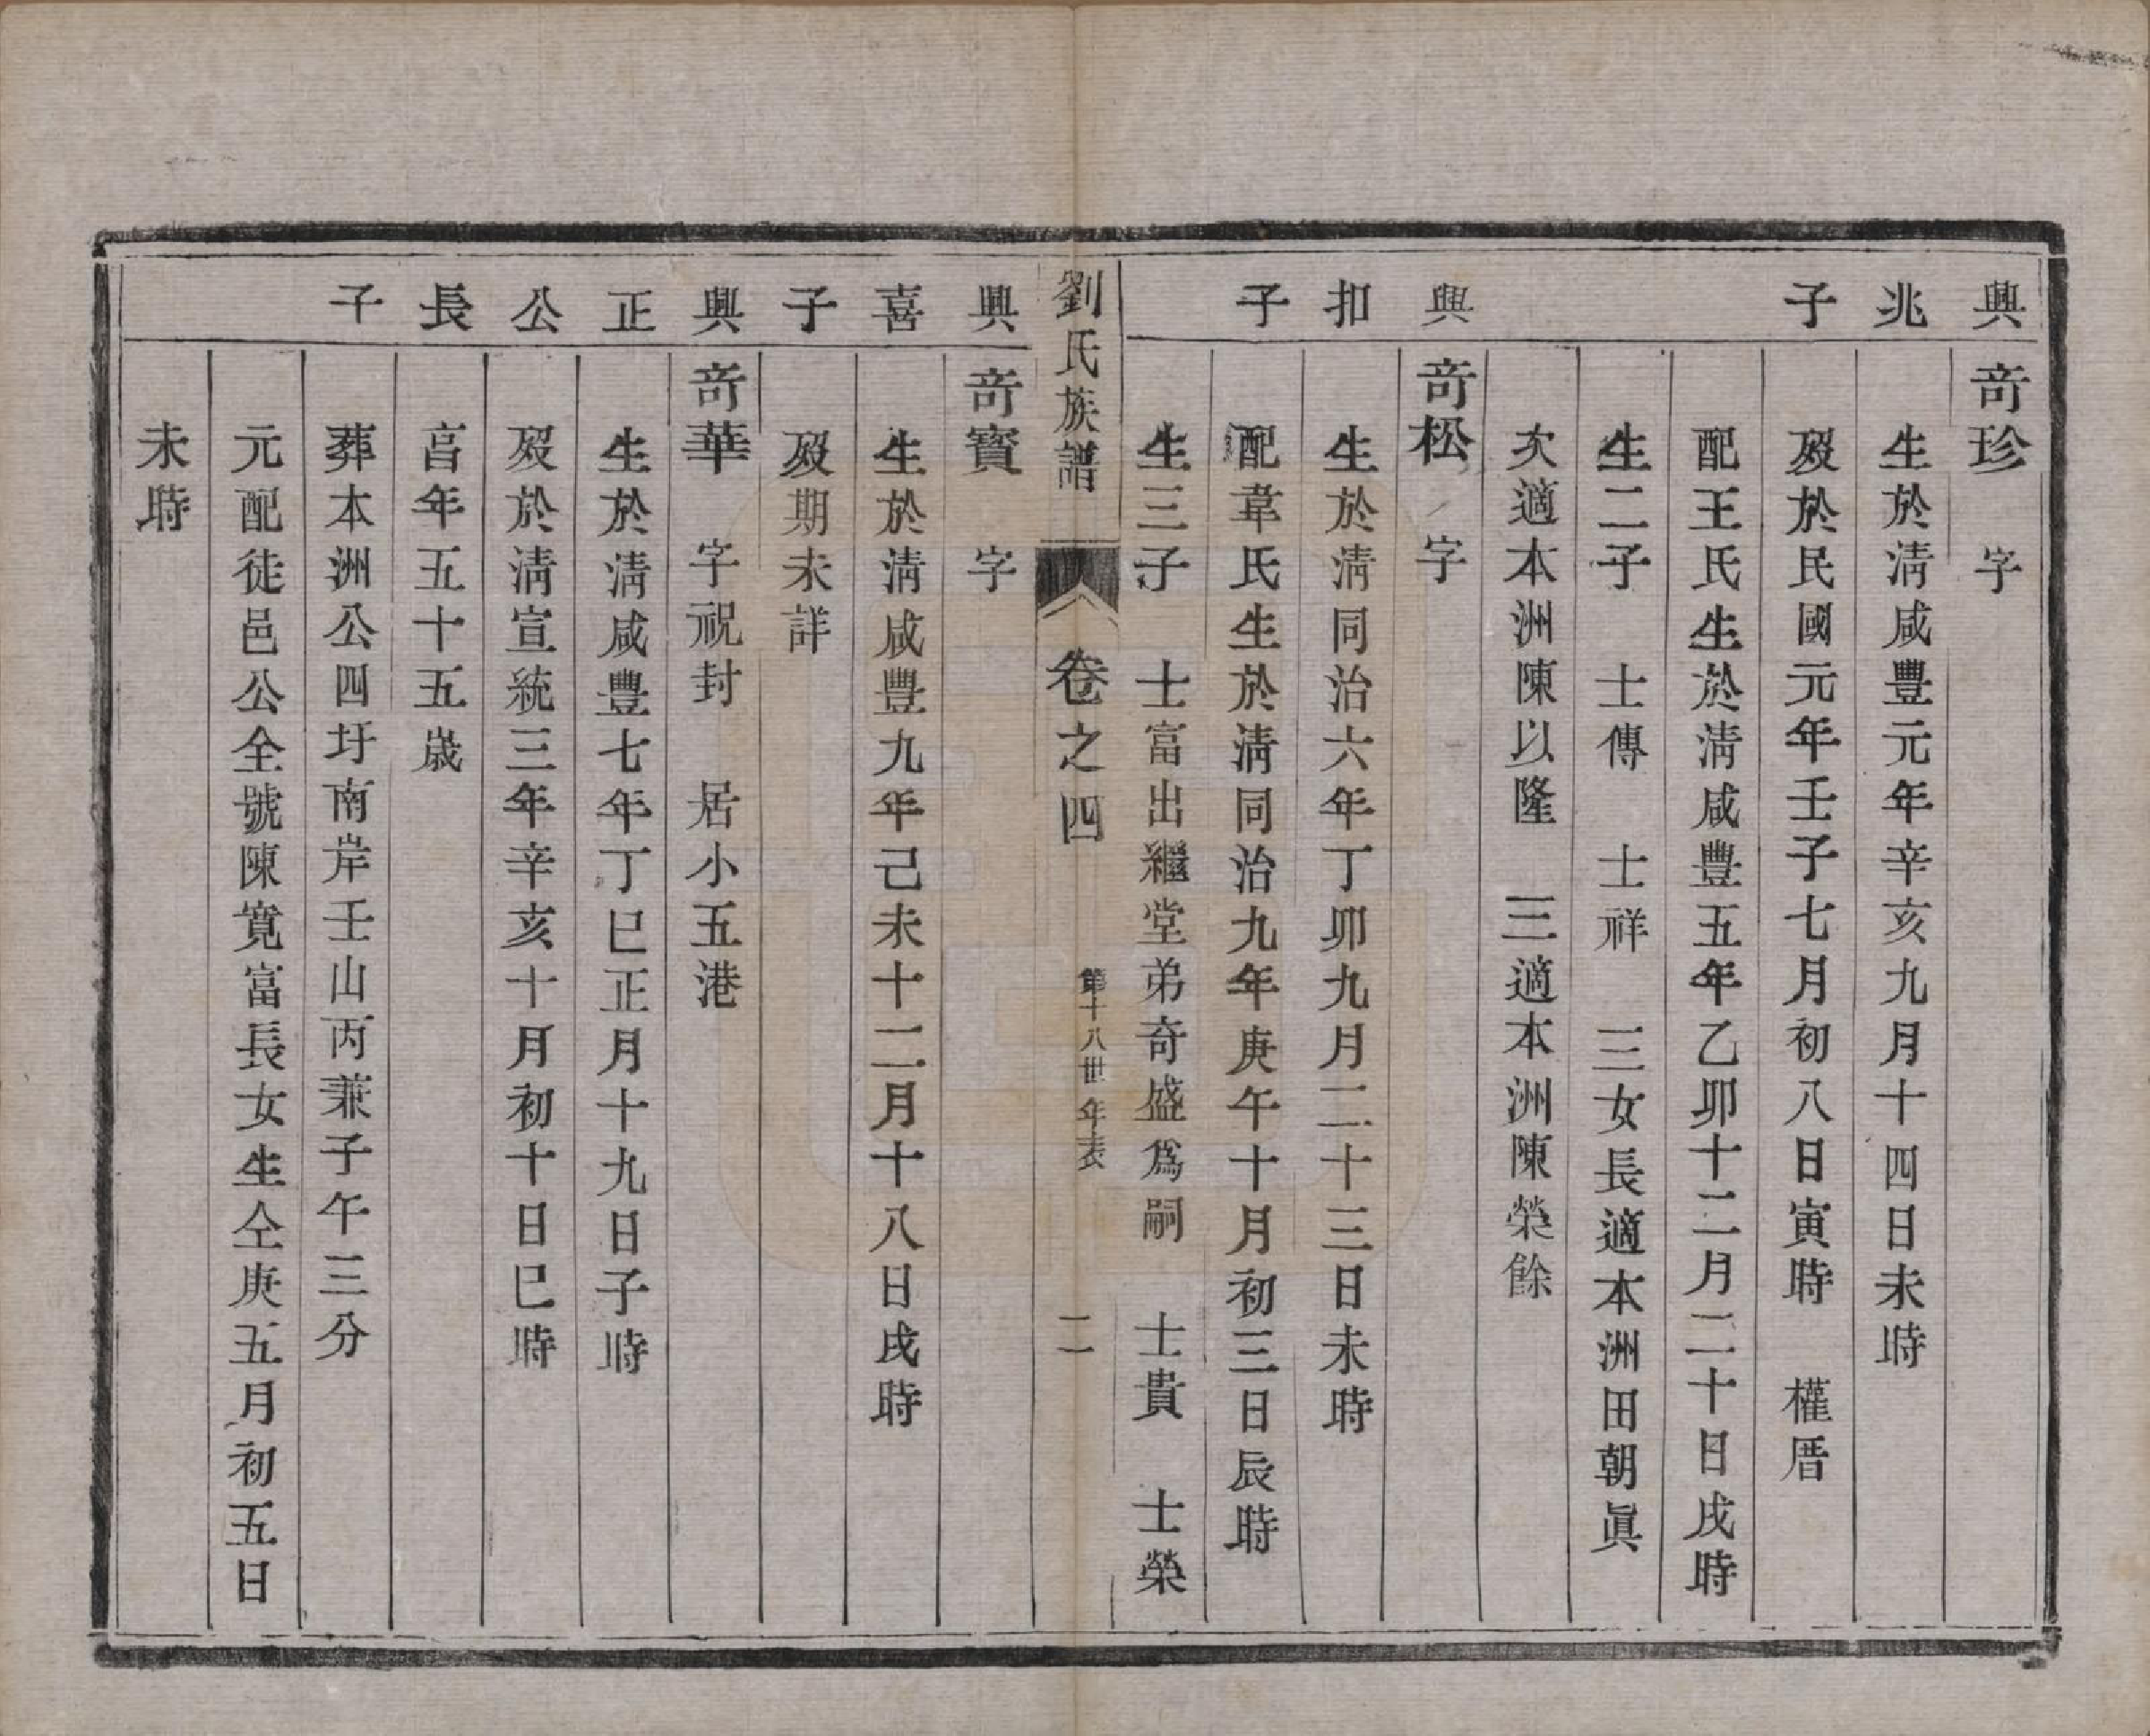 興 奇珍 字
兆 生於淸咸豐元年辛亥九月十四日未時
子 歿於民國元年壬子七月初八日寅時 權厝
配王氏生於淸咸豐五年乙卯十二月二十日戌時
生二子 士傳 士祥 三女長適本洲田朝眞
次適本洲陳以隆 三適本洲陳榮餘
興 奇松 字
扣 生於淸同治六年丁卯九月二十三日未時
子 配韋氏生於淸同治九年庚午十月初三日辰時
生三子 士富出繼堂弟奇盛爲嗣 士貴 士榮
劉氏族譜 卷之四 第十八世年表 二
興 奇寶 字
喜 生於淸咸豐九年己未十二月十八日戌時
子 歿期未詳
興 奇華 字祝封 居小五港
正 生於淸咸豐七年丁巳正月十九日子時
公 歿於淸宣統三年辛亥十月初十日巳時
長 亯年五十五歲
子 葬本洲公四圩南岸壬山丙兼子午三分
元配徒邑公全號陳寬富長女生仝庚五月初五日
未時